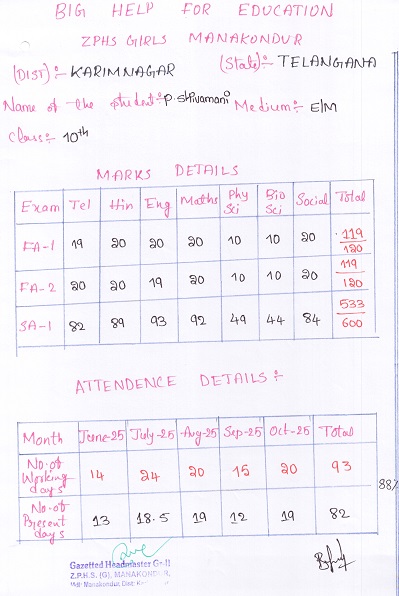 BIG HELP FOR EDUCATION
ZPHS GIRLS MANAKONDUR
(DIST) :- KARIMNAGAR (State) :- TELANGANA
Name of the student :- P. Shivamani Medium :- E/M
Class :- 10th
MARKS DETAILS
Exam Tel Hin Eng Maths Phy Sci Bio Sci Social Total
FA-1 19 20 20 20 10 10 20 119/120
FA-2 20 20 19 20 10 10 20 119/120
SA-1 82 89 93 92 49 44 84 533/600
ATTENDENCE DETAILS :-
Month June-25 July-25 Aug-25 Sep-25 Oct-25 Total
No. of Working days 14 24 20 15 20 93
88%
No. of Present days 13 18.5 19 12 19 82
Gazetted Headmaster Gr-II
Z.P.H.S. (G), MANAKONDUR,
Manakondur, Dist: